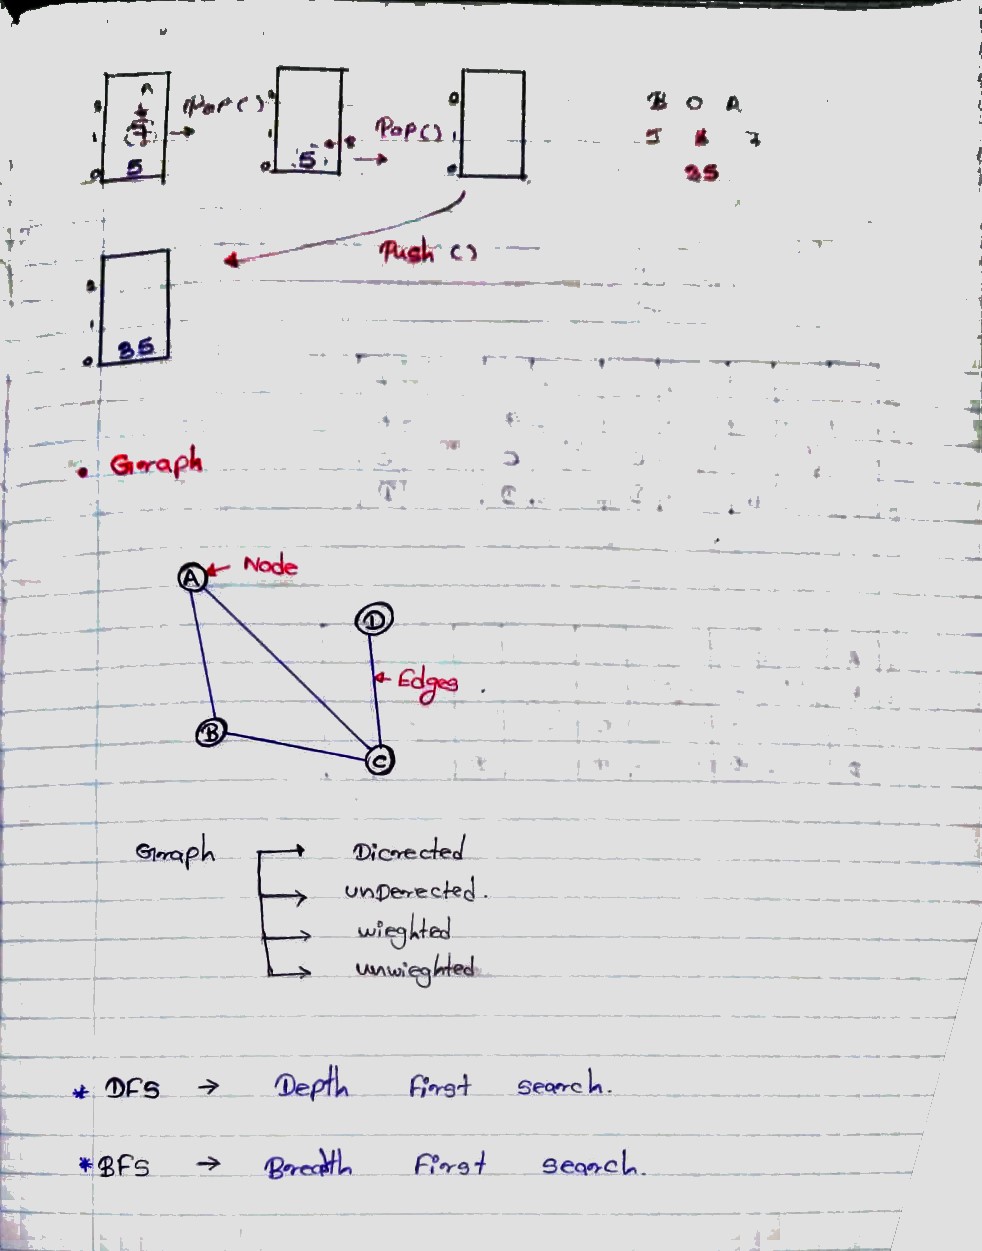 A
7
5
2
1
0
Pop()
5
2
1
0
Pop()
2
1
0
B O A
5 * 7
35
Push ()
2
1
0
35
• Graph
A
Node
D
Edges
B
C
Graph
Dicrected
unDerected.
wieghted
unwieghted
* DFS → Depth first search.
* BFS → Breadth First search.